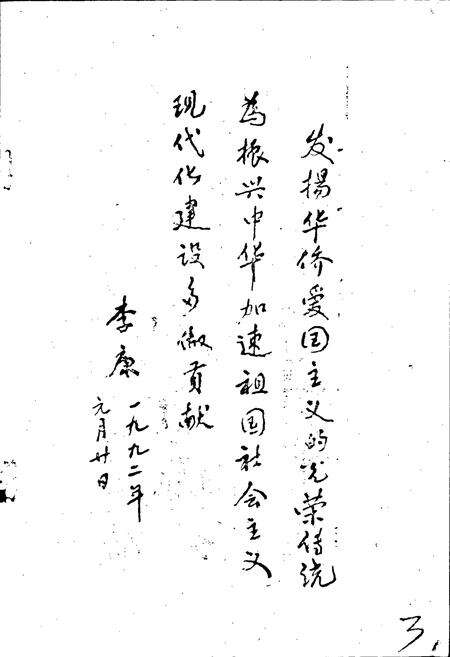 发揚华侨爱国主义的光荣传统
為振兴中华加速祖国社会主义
现代化建设多做贡献
李康
一九九二年
元月廿日
3